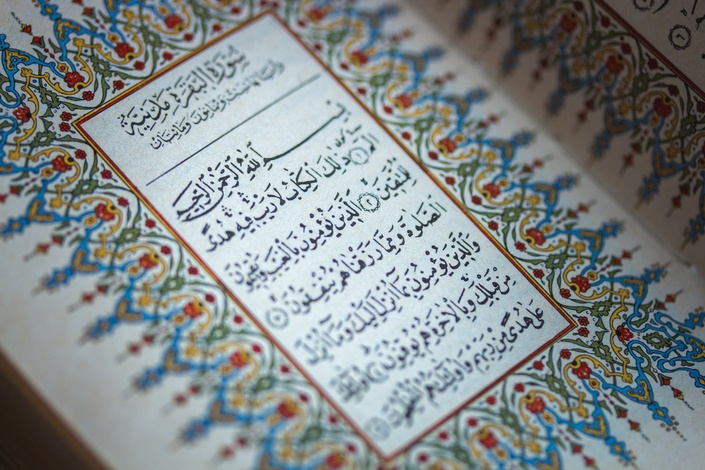 سُورَةُ الْبَقَرَةِ مَدَنِيَّةٌ
وثمانون ومائتان
بِسْمِ اللهِ الرَّحْمٰنِ الرَّحِيمِ
الٓمٓ ۝١ ذٰلِكَ الْكِتَابُ لَا رَيْبَ فِيهِ هُدًى
لِلْمُتَّقِينَ ۝٢ الَّذِينَ يُؤْمِنُونَ بِالْغَيْبِ وَيُقِيمُونَ
الصَّلٰوةَ وَمِمَّا رَزَقْنَاهُمْ يُنْفِقُونَ ۝٣
وَالَّذِينَ يُؤْمِنُونَ بِمَا أُنْزِلَ إِلَيْكَ وَمَا أُنْزِلَ
مِنْ قَبْلِكَ وَبِالْاٰخِرَةِ هُمْ يُوقِنُونَ ۝٤ أُولٰئِكَ
عَلٰى هُدًى مِنْ رَبِّهِمْ وَأُولٰئِكَ هُمُ الْمُفْلِحُونَ ۝٥